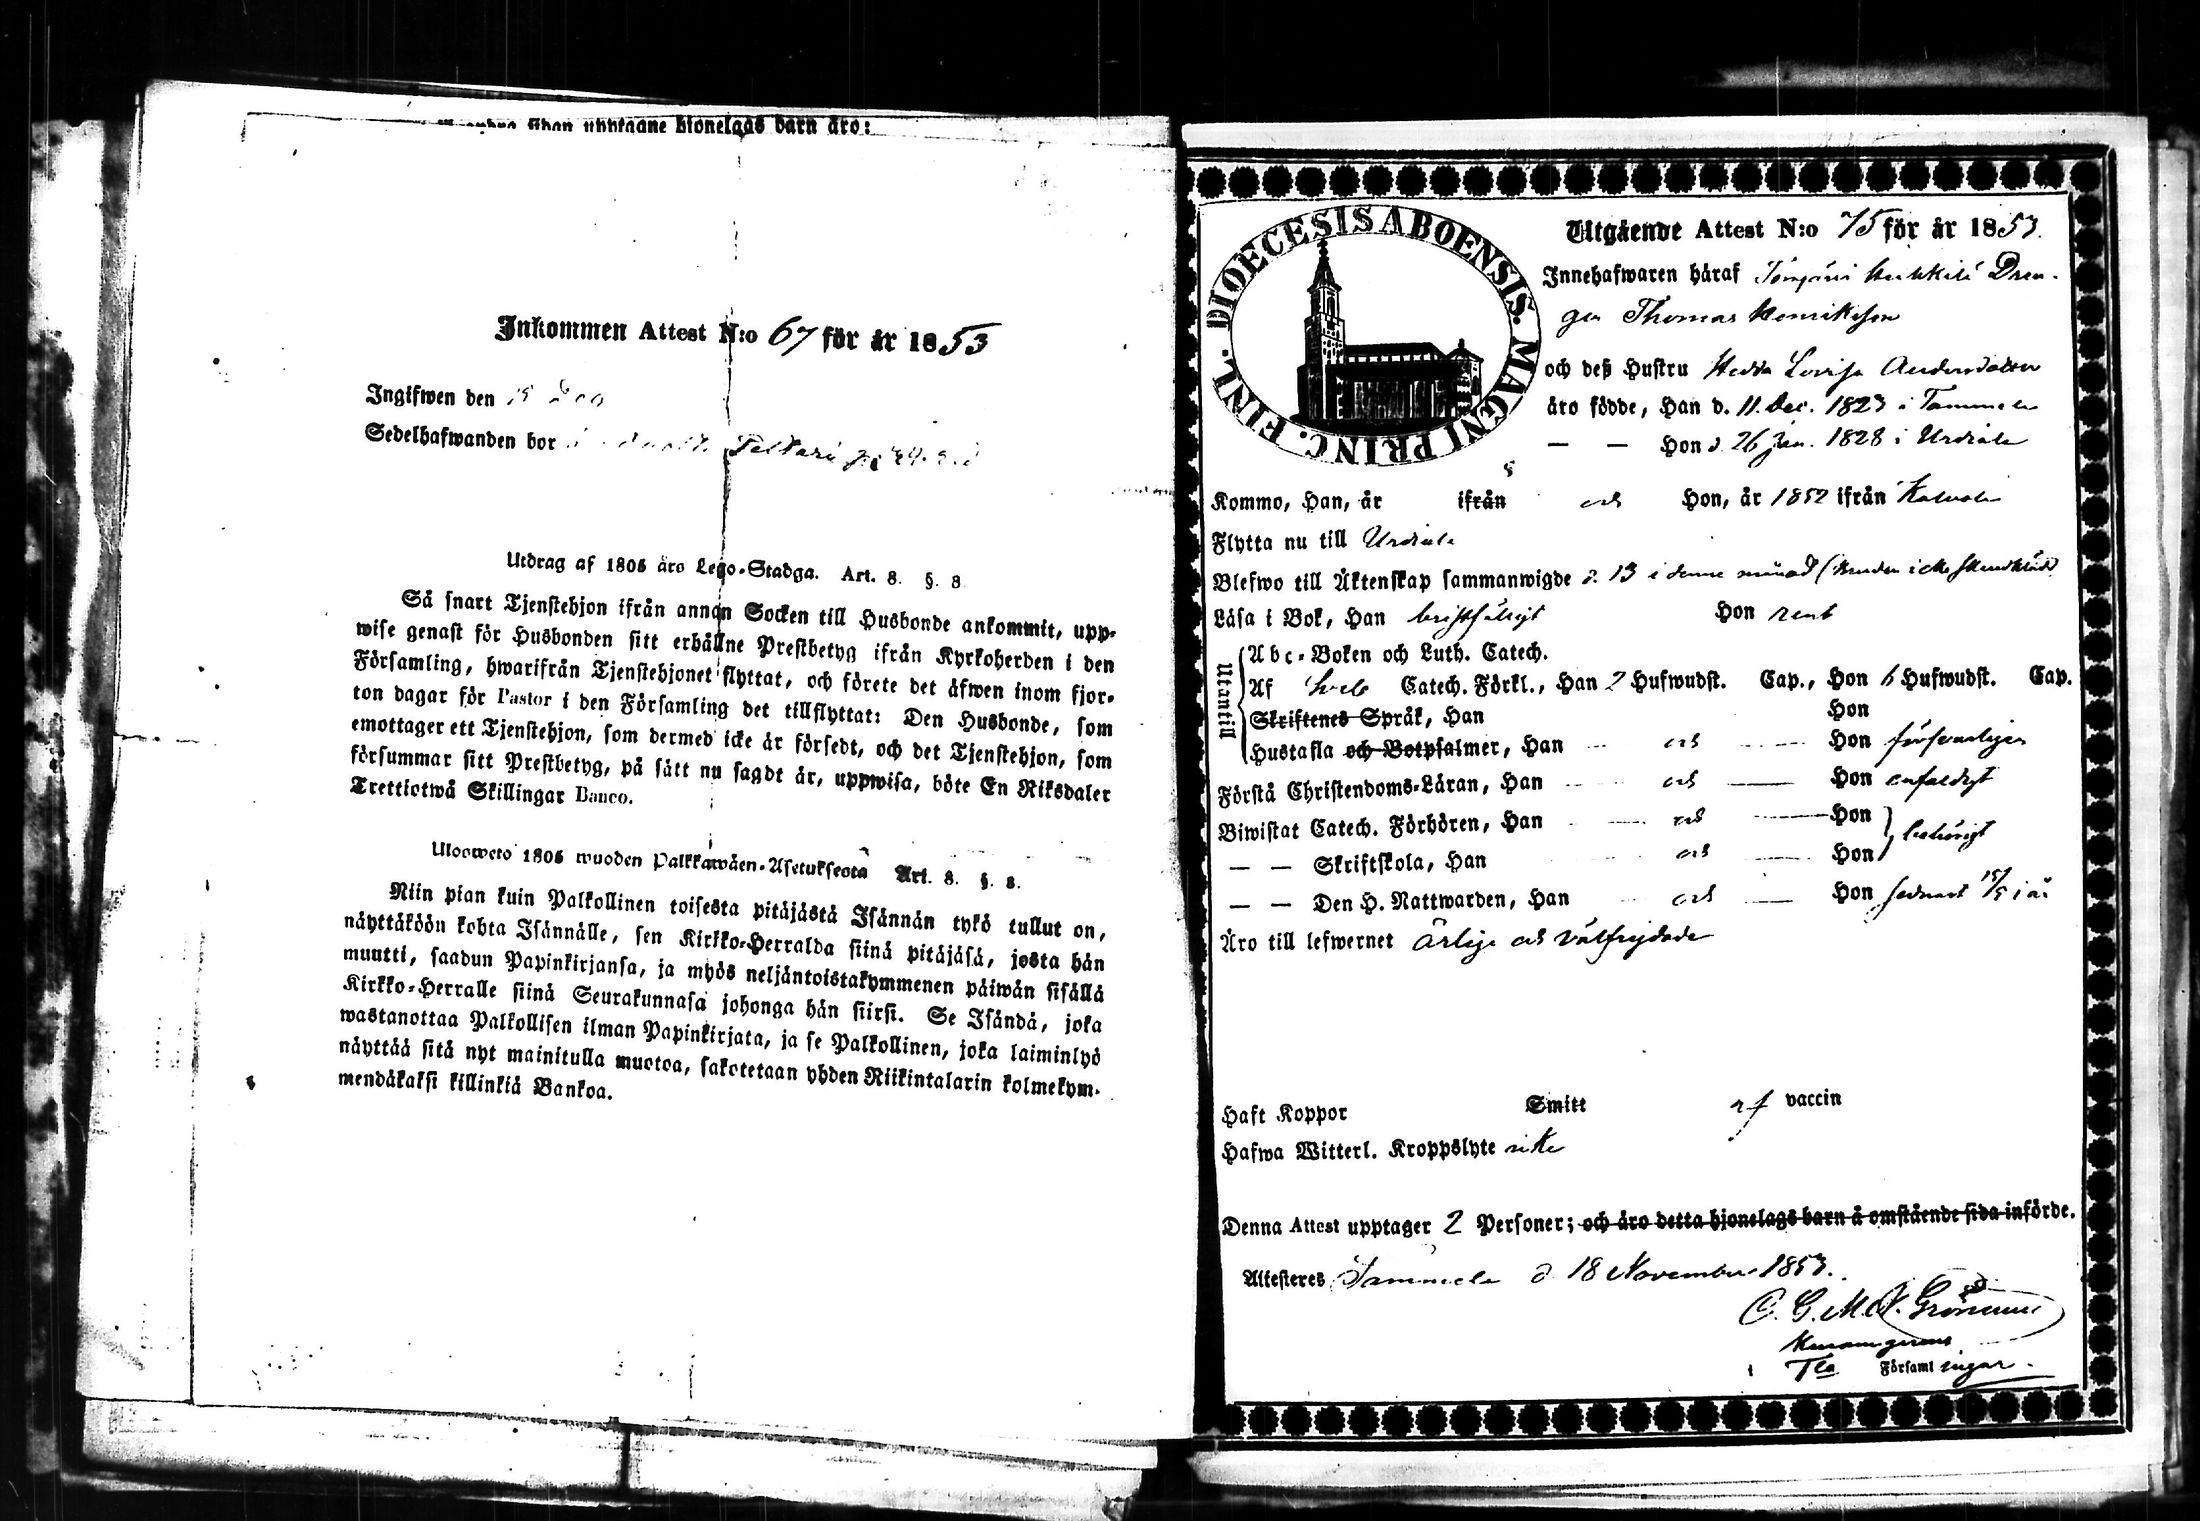 upptagne hjonelags barn äro:
Inkommen Attest N:o 67 för år 1853
Ingifwen den 19 Dec
Sedelhafwanden bor
Utdrag af 1805 års Lego-Stadga. Art. 8. §. 8.
Så snart Tjenstehjon ifrån annan Socken till Husbonde ankommit, upp-
wise genast för Husbonden sitt erhållne Prestbetyg ifrån Kyrkoherden i den
Församling, hwarifrån Tjenstehjonet flyttat, och förete det äfwen inom fjor-
ton dagar för Pastor i den Församling det tillflyttat: Den Husbonde, som
emottager ett Tjenstehjon, som dermed icke är försedt, och det Tjenstehjon, som
försummar sitt Prestbetyg, på sätt nu sagdt är, uppwisa, böte En Riksdaler
Trettiotwå Skillingar Banco.
Uloswetö 1805 wuoden Palkkawäen-Asetuksesta Art. 8. §. 8.
Niin pian kuin Palkollinen toisesta pitäjästä Isännän tykö tullut on,
näyttäköön kohta Isännälle, sen Kirkko-Herralda siinä pitäjäsä, josta hän
muutti, saadun Papinkirjansa, ja myös neljäntoistakymmenen päiwän sisällä
Kirkko-Herralle siinä Seurakunnasa johonga hän siirsi. Se Isändä, joka
wastanottaa Palkollisen ilman Papinkirjata, ja se Palkollinen, joka laiminlyö
näyttää sitä nyt mainitulla muotoa, sakotetaan yhden Riikintalarin kolmekym-
mendäkaksi killinkiä Bankoa.
DIOECESIS ABOENSIS. MAGNI PRINC. FINL.
Utgående Attest N:o 75 för år 1853.
Innehafwaren häraf Dren-
gen Thomas Henriksson
och deß Hustru Hedda Lovisa Andersdotter
äro födde, Han d. 11. Dec. 1823 i Tammela
— — Hon d 26 Jan. 1828 i Urdiala
Kommo, Han, år ifrån och Hon, år 1852 ifrån Kalvola
Flytta nu till Urdiala
Blefwo till Äktenskap sammanwigde d. 13 i denne månad
Läsa i Bok, Han bristfälligt Hon rent
Utantill
Abc-Boken och Luth. Catech.
Af Sveb Catech. Förkl., Han 2 Hufwudst. Cap., Hon 6 Hufwudst. Cap.
Skriftenes Språk, Han Hon
Hustafla och Botpsalmer, Han och Hon försvarligen
Förstå Christendoms-Läran, Han och Hon enfaldigt
Biwistat Catech. Förhören, Han och Hon
behörigt
— — Skriftskola, Han och Hon
— — Den H. Nattwarden, Han och Hon sednast 15/5 i år
Äro till lefwernet ärlige och välfrejdade
Haft Koppor Smitt af vaccin
Hafwa Witterl. Kroppslyte icke
Denna Attest upptager 2 Personer; och äro detta hjonelags barn å omstående sida införde.
Attesteres Tammela d 18 November 1853.
Församlingar.